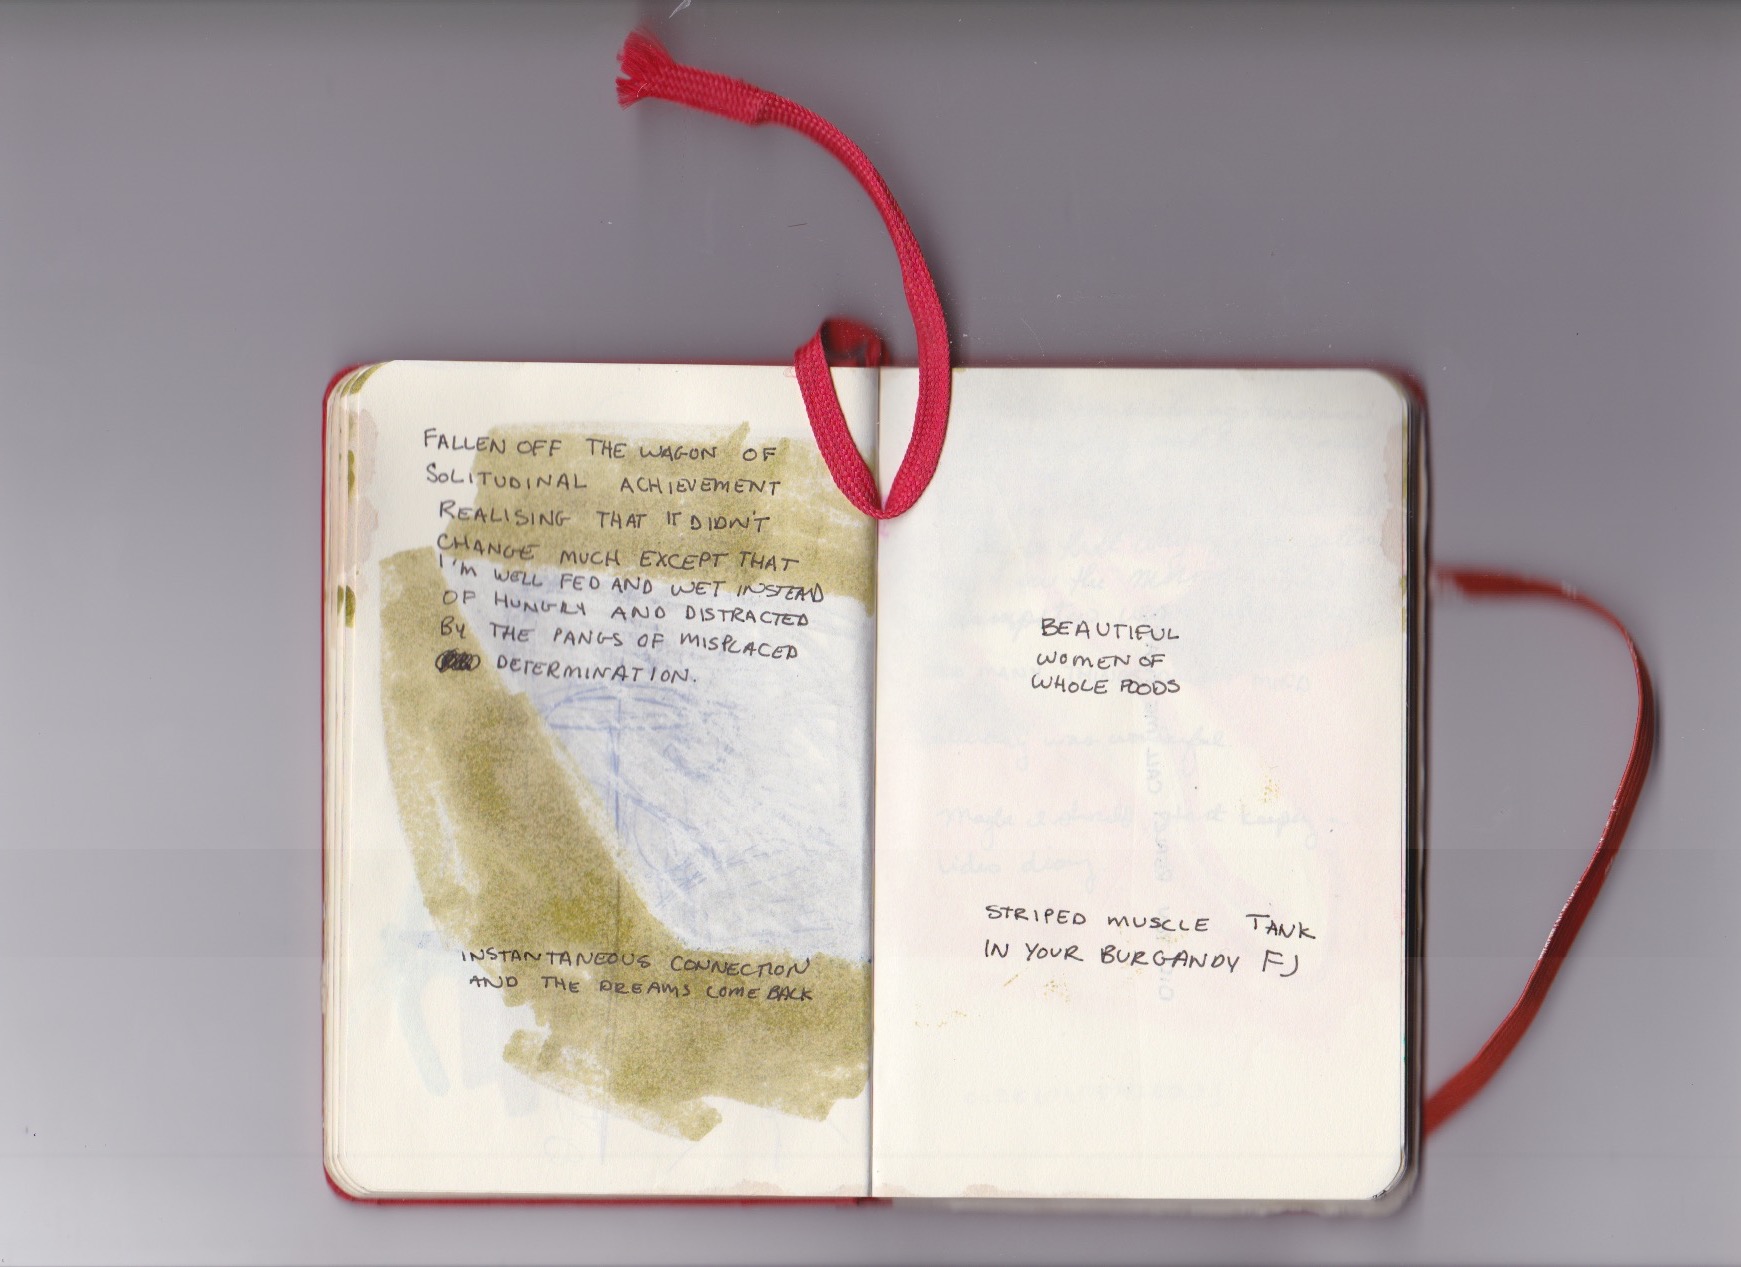 FALLEN OFF THE WAGON OF
SOLITUDINAL ACHIEVEMENT
REALISING THAT IT DIDN'T
CHANGE MUCH EXCEPT THAT
I'M WELL FED AND WET INSTEAD
OF HUNGRY AND DISTRACTED
BY THE PANGS OF MISPLACED
DETERMINATION.
INSTANTANEOUS CONNECTION
AND THE DREAMS COME BACK
BEAUTIFUL
WOMEN OF
WHOLE FOODS
STRIPED MUSCLE TANK
IN YOUR BURGANDY FJ